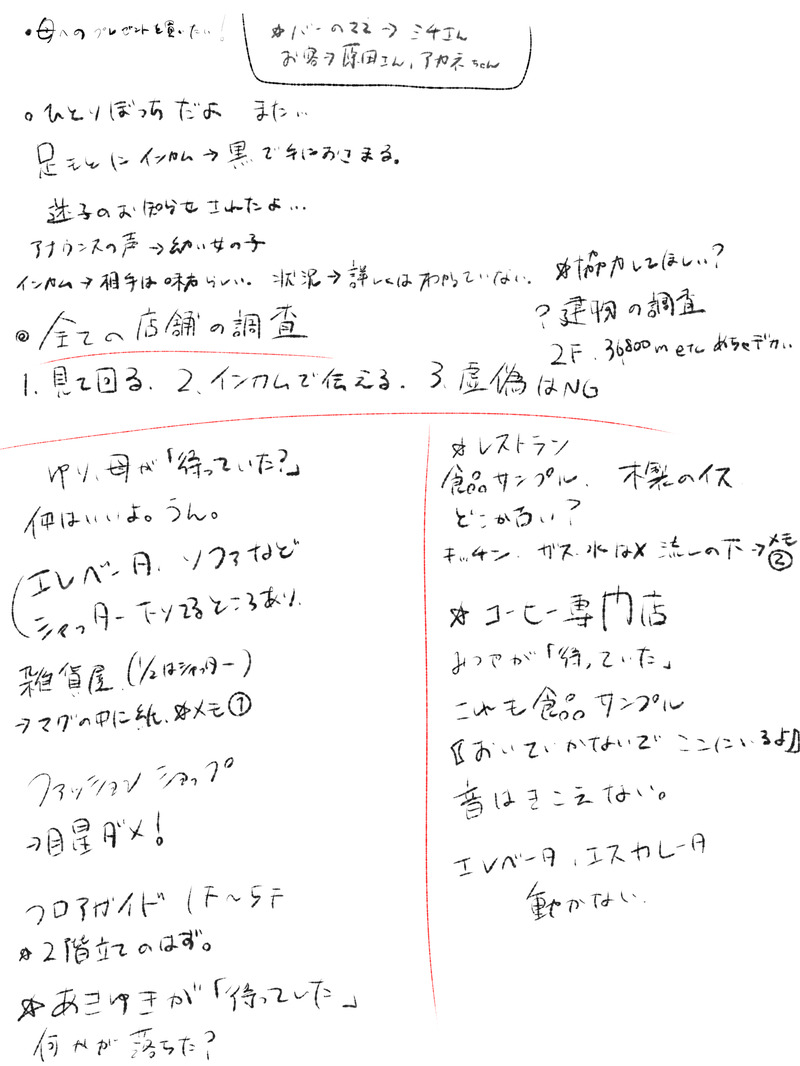 ・母へのプレゼントを買いたい!
☆バーのママ→ミチさん
お客→原田さん、アカネちゃん
○ひとりぼっちだよ また…
足もとにインカム→黒で手におさまる。
迷子のお知らせされたよ…
アナウンスの声→幼い女の子
インカム→相手は味方らしい。状況→詳しくはわかっていない。
☆協力してほしい?
?建物の調査
2F、36800m etc めちゃデカい
◎全ての店舗の調査
1.見て回る、2、インカムで伝える、3、虚偽はNG
ゆり、母が「待っていた?」
仲はいいよ。うん。
(エレベータ、ソファなど
シャッター下りてるところあり、
雑貨屋、(1/2はシャッター)
→マグの中に紙、☆メモ①
ファッションショップ
→目星ダメ!
フロアガイド 1F~5F
☆2階立てのはず。
☆あきゆきが「待っていた」
何かが落ちた?
☆レストラン
食品サンプル、木製のイス
どこか古い?
キッチン、ガス、水は× 流しの下→メモ②
☆コーヒー専門店
みつやが「待っていた」
これも食品サンプル
『おいていかないで ここにいるよ』
音はきこえない。
エレベータ、エスカレータ
動かない、